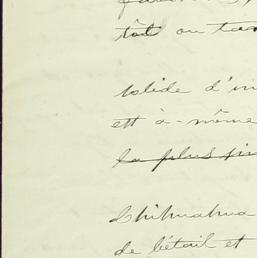 tôt ou tar
solide d'in
est à-même
la plus sin
Chihuahua
de bétail et